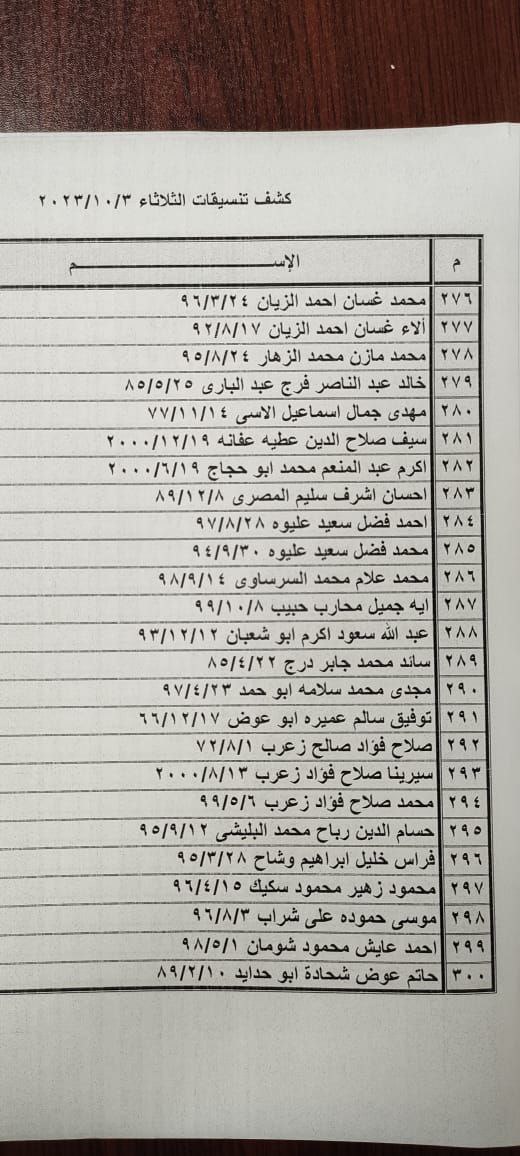 كشف تنسيقات الثلاثاء ٢٠٢٣/١٠/٣
م الإســـــــــــــم
٢٧٦ محمد غسان احمد الزيان ٩٦/٣/٢٤
٢٧٧ ألاء غسان احمد الزيان ٩٢/٨/١٧
٢٧٨ محمد مازن محمد الزهار ٩٥/٨/٢٤
٢٧٩ خالد عبد الناصر فرج عبد البارى ٨٥/٥/٢٥
٢٨٠ مهدى جمال اسماعيل الاسى ٧٧/١١/١٤
٢٨١ سيف صلاح الدين عطيه عفانه ٢٠٠٠/١٢/١٩
٢٨٢ اكرم عبد المنعم محمد ابو حجاج ٢٠٠٠/٦/١٩
٢٨٣ احسان اشرف سليم المصرى ٨٩/١٢/٨
٢٨٤ احمد فضل سعيد عليوه ٩٧/٨/٢٨
٢٨٥ محمد فضل سعيد عليوه ٩٤/٩/٣٠
٢٨٦ محمد علام محمد السرساوى ٩٨/٩/١٤
٢٨٧ ايه جميل محارب حبيب ٩٩/١٠/٨
٢٨٨ عبد الله سعود اكرم ابو شعبان ٩٣/١٢/١٢
٢٨٩ سائد محمد جابر درج ٨٥/٤/٢٢
٢٩٠ مجدى محمد سلامه ابو حمد ٩٧/٤/٢٣
٢٩١ توفيق سالم عميره ابو عوض ٦٦/١٢/١٧
٢٩٢ صلاح فؤاد صالح زعرب ٧٢/٨/١
٢٩٣ سيرينا صلاح فؤاد زعرب ٢٠٠٠/٨/١٣
٢٩٤ محمد صلاح فؤاد زعرب ٩٩/٥/٦
٢٩٥ حسام الدين رباح محمد البليشى ٩٥/٩/١٢
٢٩٦ فراس خليل ابراهيم وشاح ٩٥/٣/٢٨
٢٩٧ محمود زهير محمود سكيك ٩٦/٤/١٥
٢٩٨ موسى حموده على شراب ٩٦/٨/٣
٢٩٩ احمد عايش محمود شومان ٩٨/٥/١
٣٠٠ حاتم عوض شحادة ابو حدايد ٨٩/٢/١٠